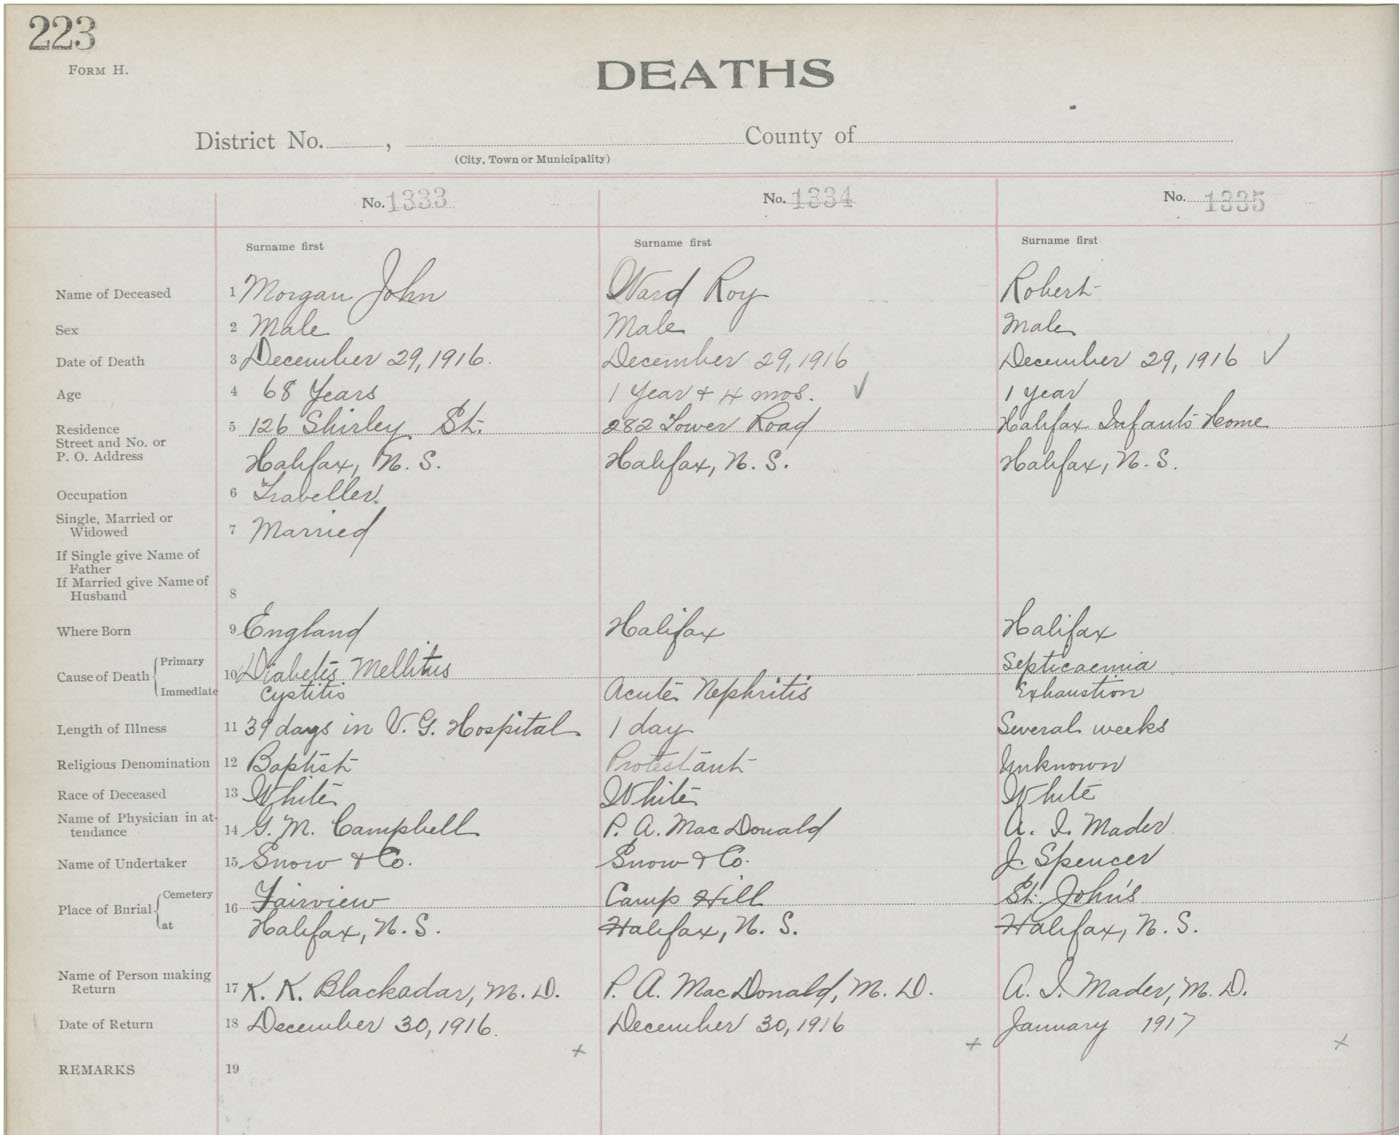 223
FORM H.
DEATHS
District No. , County of
(City, Town or Municipality)
No. 1333 No. 1334 No. 1335
Surname first Surname first Surname first
Name of Deceased 1 Morgan John Ward Roy Robert
Sex 2 Male Male Male
Date of Death 3 December 29, 1916. December 29, 1916 December 29, 1916 ✓
Age 4 68 Years 1 Year & 4 mos. ✓ 1 year
Residence 5 126 Shirley St. 282 Tower Road Halifax Infants Home
Street and No. or
P. O. Address Halifax, N. S. Halifax, N. S. Halifax, N. S.
Occupation 6 Traveller.
Single, Married or
Widowed 7 Married
If Single give Name of
Father
If Married give Name of
Husband 8
Where Born 9 England Halifax Halifax
Cause of Death { Primary 10 Diabetis Mellitus Septicaemia
Immediate Cystitis Acute Nephritis Exhaustion
Length of Illness 11 39 days in V. G. Hospital 1 day Several weeks
Religious Denomination 12 Baptist Protestant Unknown
Race of Deceased 13 White White White
Name of Physician in at-
tendance 14 G. M. Campbell P. A. MacDonald A. I. Mader
Name of Undertaker 15 Snow & Co. Snow & Co. J. Spencer
Place of Burial { Cemetery 16 Fairview Camp Hill St. John's
at Halifax, N. S. Halifax, N. S. Halifax, N. S.
Name of Person making
Return 17 K. K. Blackadar, M. D. P. A. MacDonald, M. D. A. I. Mader, M. D.
Date of Return 18 December 30, 1916. December 30, 1916 January 1917
+ + +
REMARKS 19